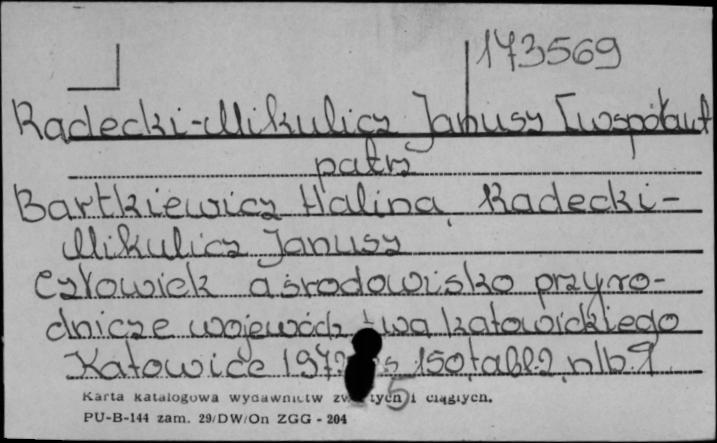 173569
Radecki-Mikulicz Janusz [współaut
patrz
Bartkiewicz Halina, Radecki-
Mikulicz Janusz
Człowiek a środowisko przyro-
dnicze województwa katowickiego
Katowice 197 s 150, tabl. 2, nlb. 9
5
Karta katalogowa wydawnictw i ciągłych.
PU-B-144 zam. 29/DW/On ZGG - 204